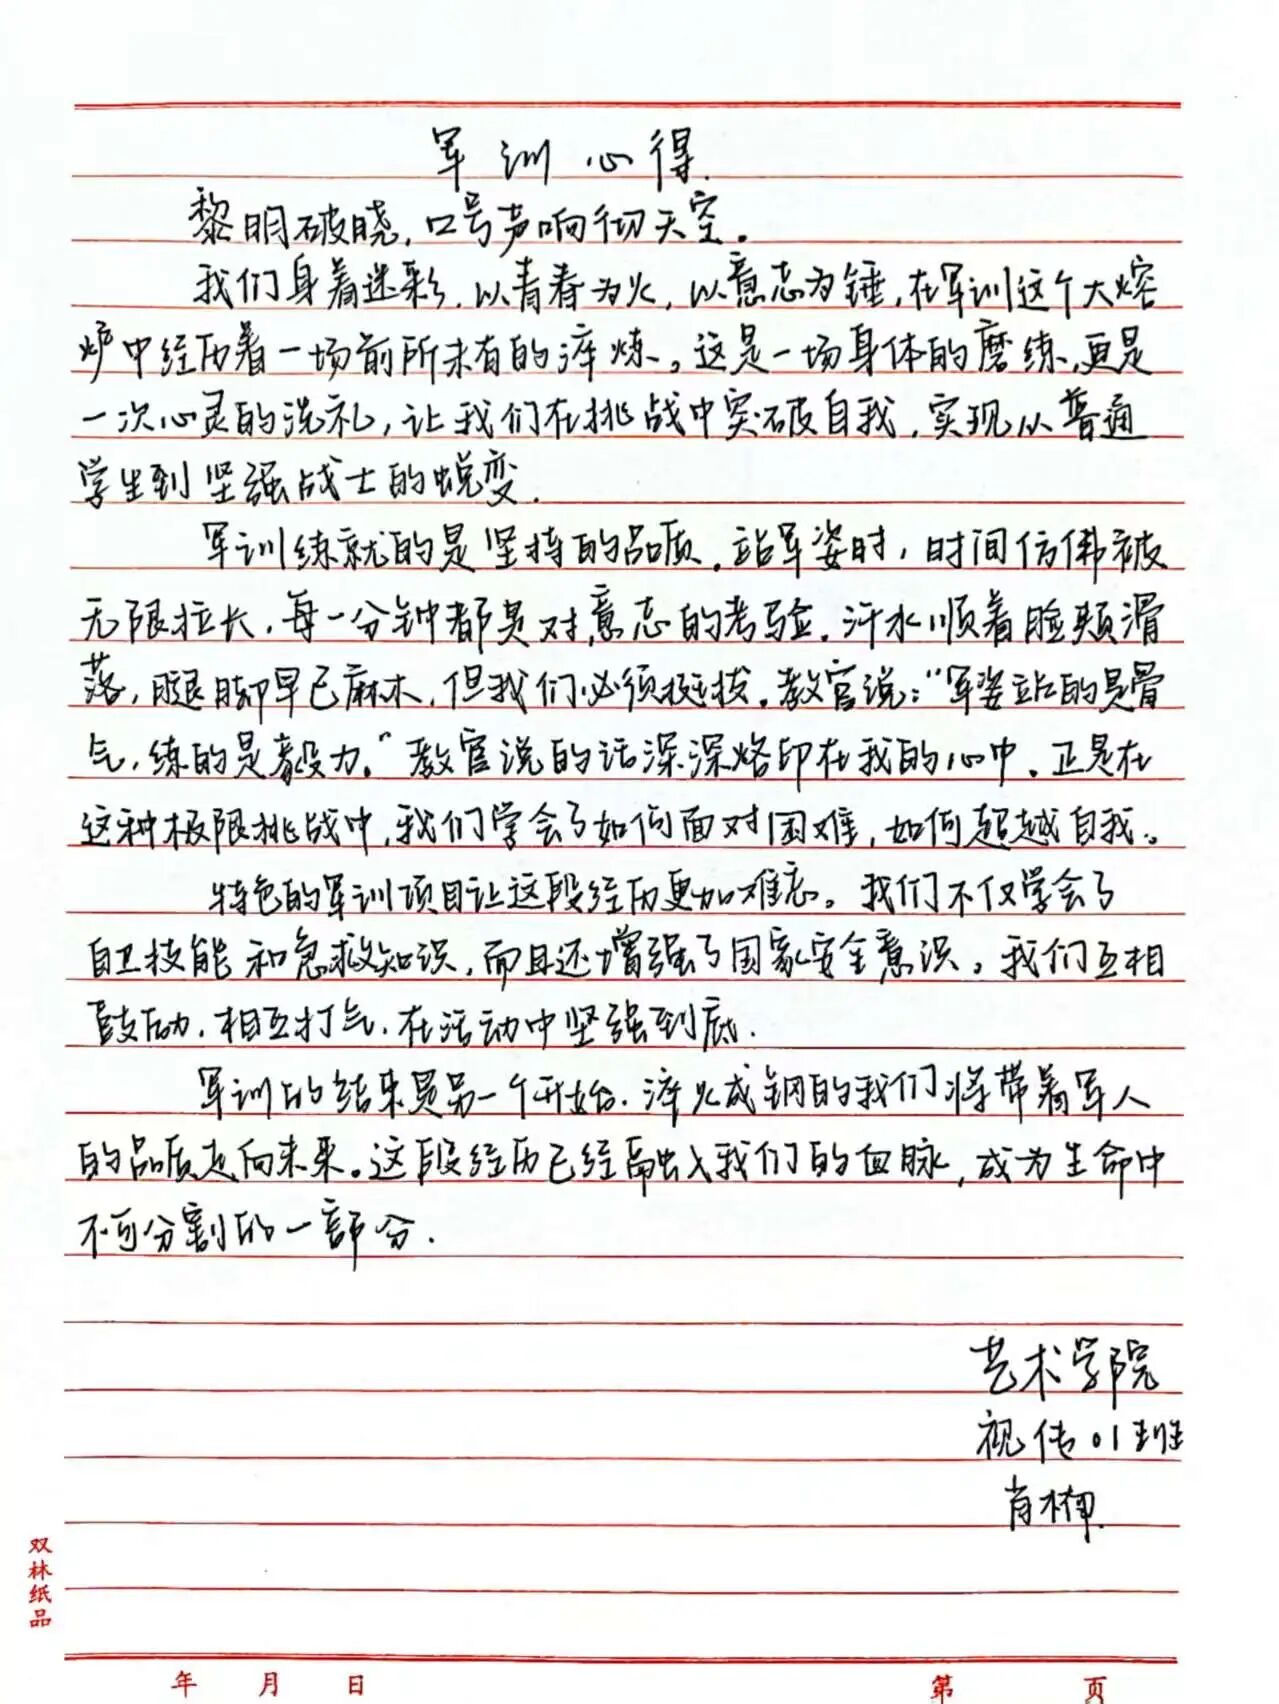 军训心得
黎明破晓，口号声响彻天空。
我们身着迷彩，以青春为火，以意志为锤，在军训这个大熔
炉中经历着一场前所未有的淬炼。这是一场身体的磨练，更是
一次心灵的洗礼，让我们在挑战中突破自我，实现从普通
学生到坚强战士的蜕变.
军训练就的是坚持的品质.站军姿时，时间仿佛被
无限拉长，每一分钟都是对意志的考验.汗水顺着脸颊滑
落，腿脚早已麻木，但我们必须挺拔.教官说："军姿站的是骨
气，练的是毅力。"教官说的话深深烙印在我的心中.正是在
这种极限挑战中，我们学会了如何面对困难，如何超越自我。
特色的军训项目让这段经历更加难忘。我们不仅学会了
自卫技能和急救知识，而且还增强了国家安全意识。我们互相
鼓励，相互打气，在活动中坚强到底.
军训的结束是另一个开始.淬火成钢的我们将带着军人
的品质走向未来。这段经历已经融入我们的血脉，成为生命中
不可分割的一部分.
艺术学院
视传01班
肖
双林纸品
年 月 日 第 页